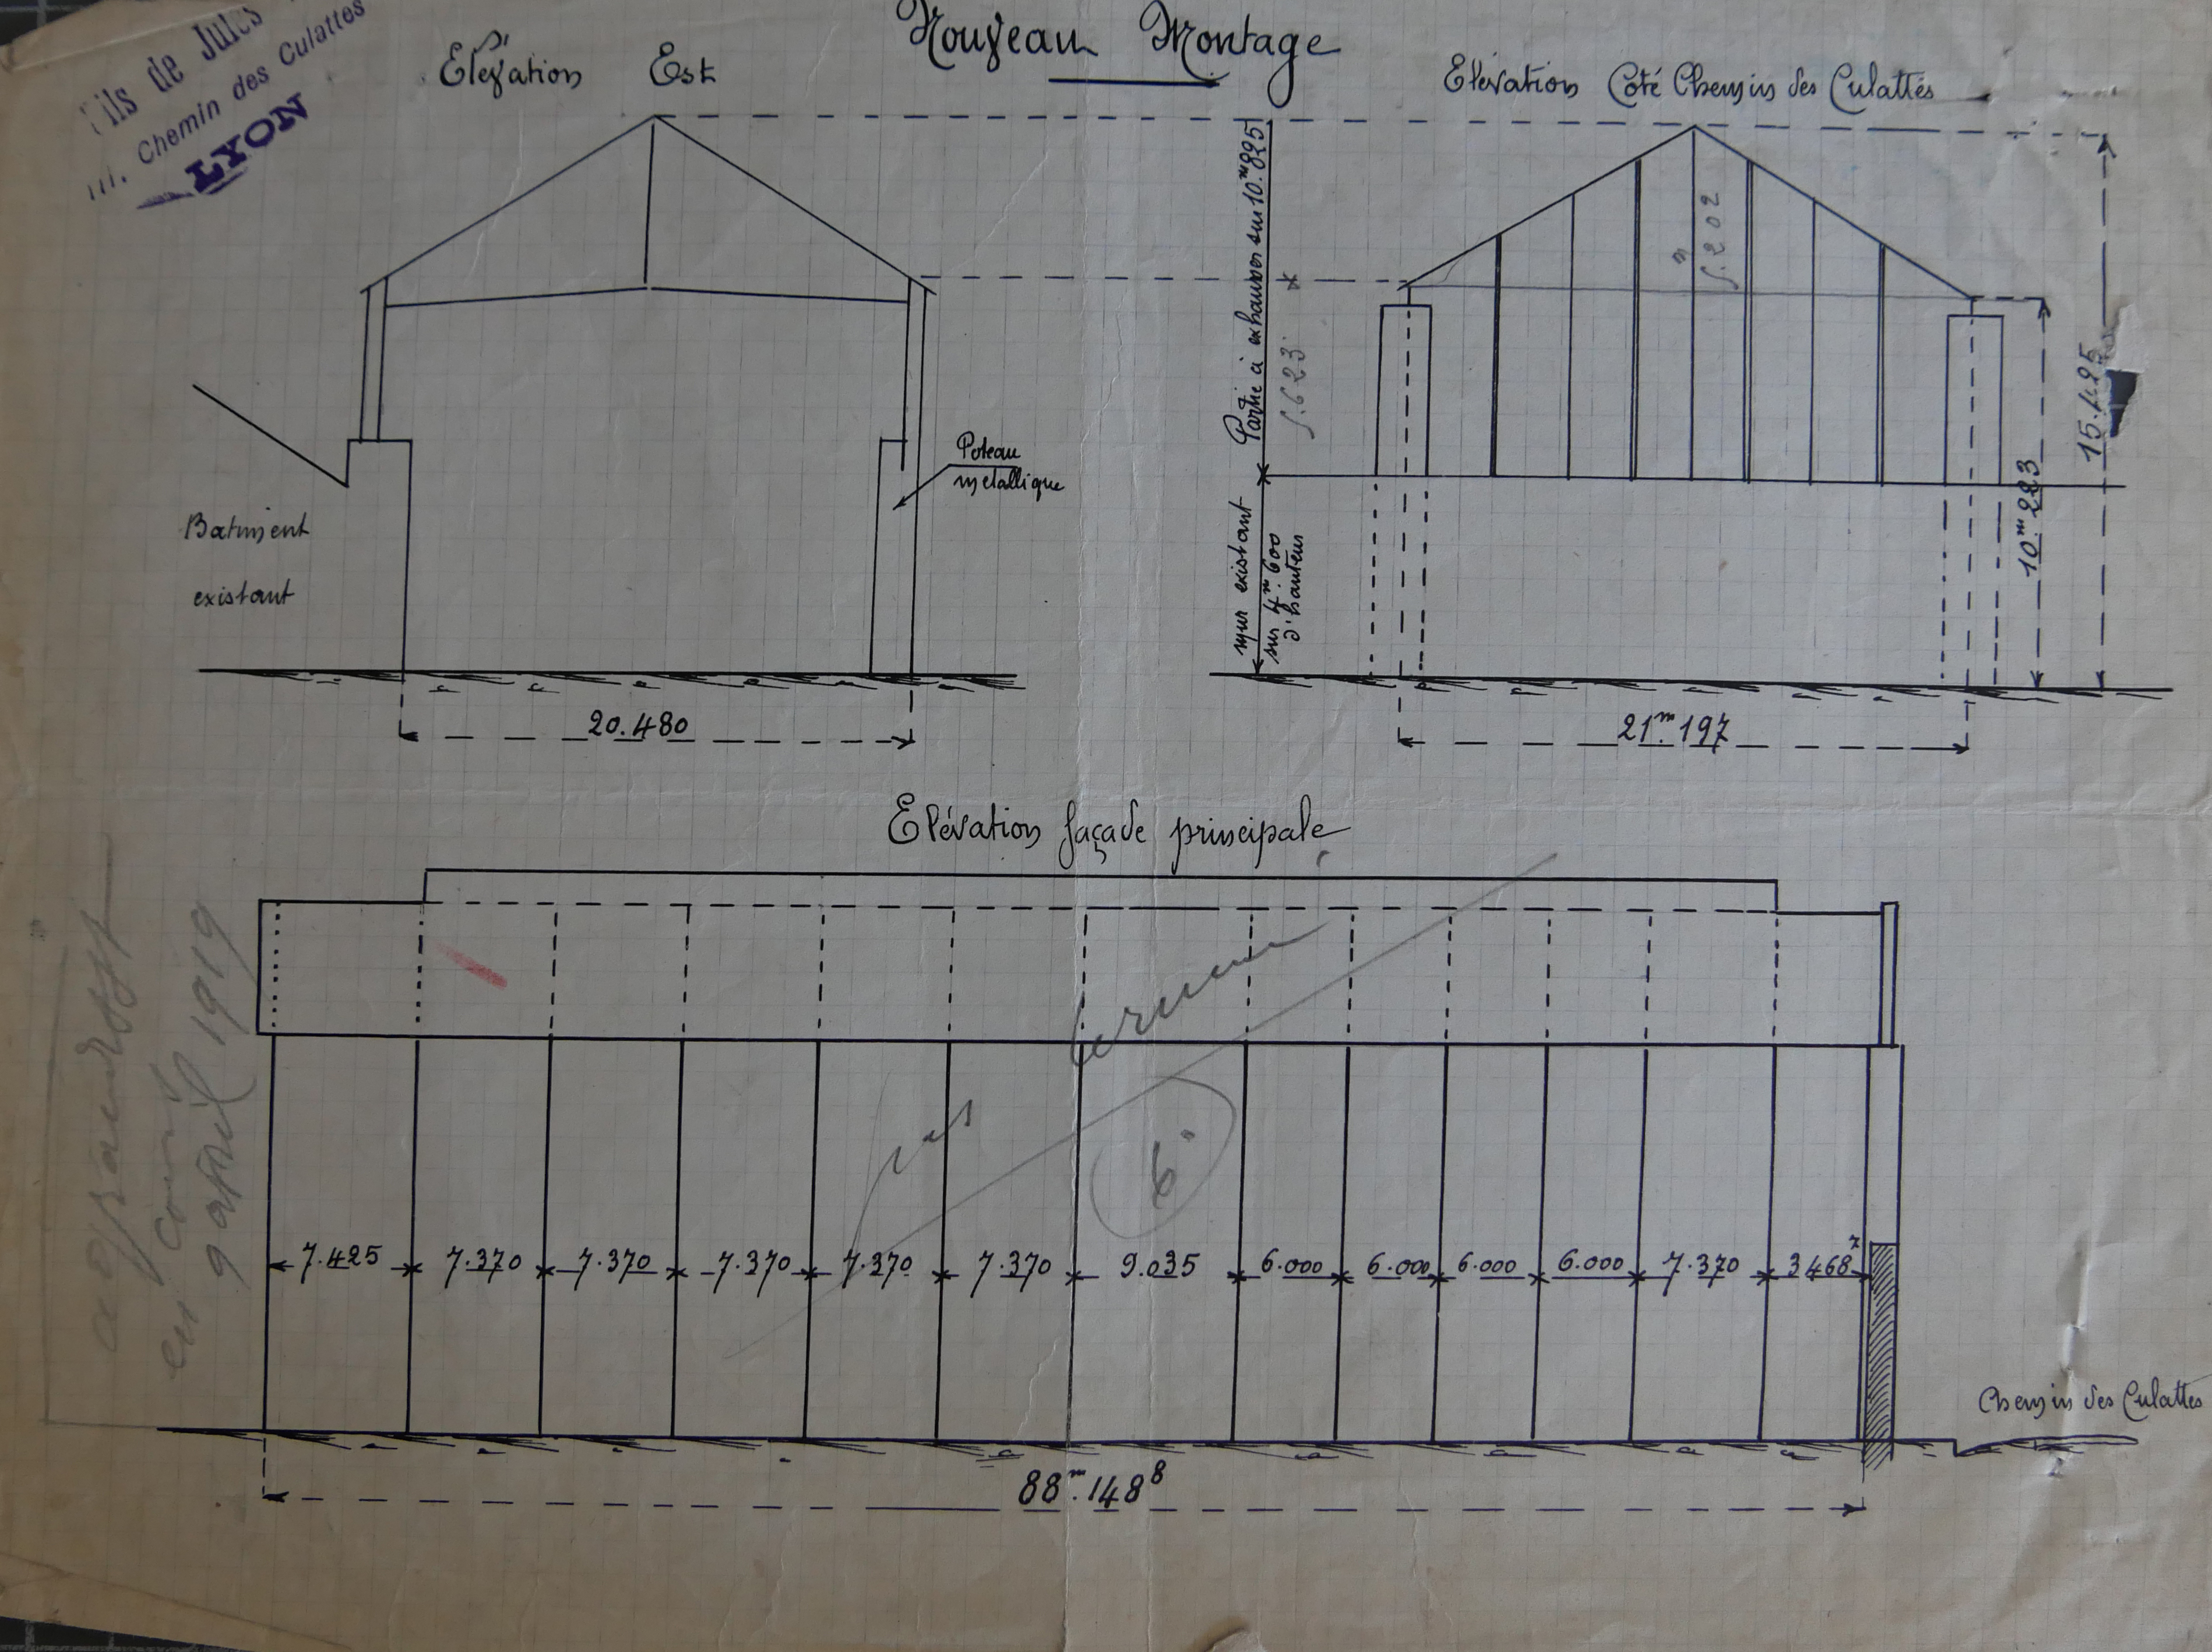 Fils de Jules
111. Chemin des Culattes
LYON
Nouveau Montage
Elévation Est
Elévation Coté Chemin des Culattes
Partie à exhausser sur 10.m825
5.623
mur existant
sur 4.m600
d'hauteur
5.m202
15.425
10.m223
Poteau
métallique
Batiment
existant
20.480
21.m197
Elévation façade principale
pas
6.
en
9 avril 1919
7.425 7.370 7.370 7.370 7.370 7.370 9.035 6.000 6.000 6.000 6.000 7.370 3468 7
Chemin des Culattes
88.m148 8